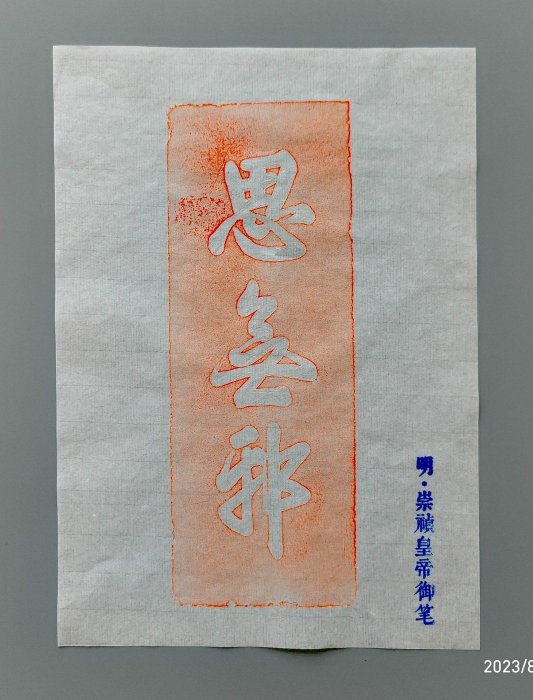 思無邪
明·崇禎皇帝御笔
2023/8